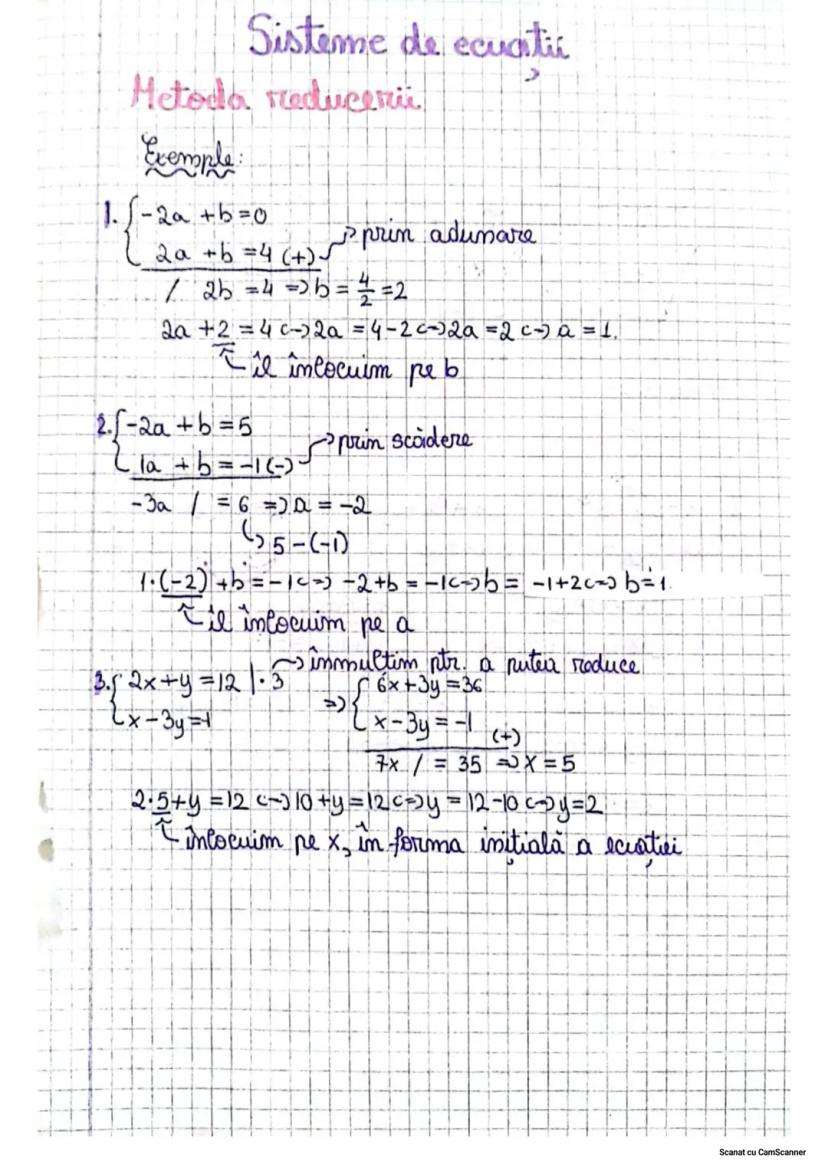 Sisteme de ecuații
Metoda reducerii
Exemple:
1. { -2a + b = 0
2a + b = 4 (+) → prin adunare
/ 2b = 4 => b = 4/2 = 2
2a + 2 = 4 <=> 2a = 4-2 <=> 2a = 2 <=> a = 1.
îl înlocuim pe b
2. { -2a + b = 5
1a + b = -1 (-) → prin scădere
-3a / = 6 => a = -2
↳ 5-(-1)
1·(-2) + b = -1 <=> -2+b = -1 <=> b = -1+2 <=> b = 1.
îl înlocuim pe a
→ înmultim ptr. a putea reduce
3. { 2x+y = 12 | · 3 => { 6x+3y = 36
x-3y = -1 x-3y = -1 (+)
7x / = 35 => x = 5
2·5+y = 12 <=> 10+y = 12 <=> y = 12-10 <=> y = 2
înlocuim pe x, în forma inițială a ecuației
Scanat cu CamScanner